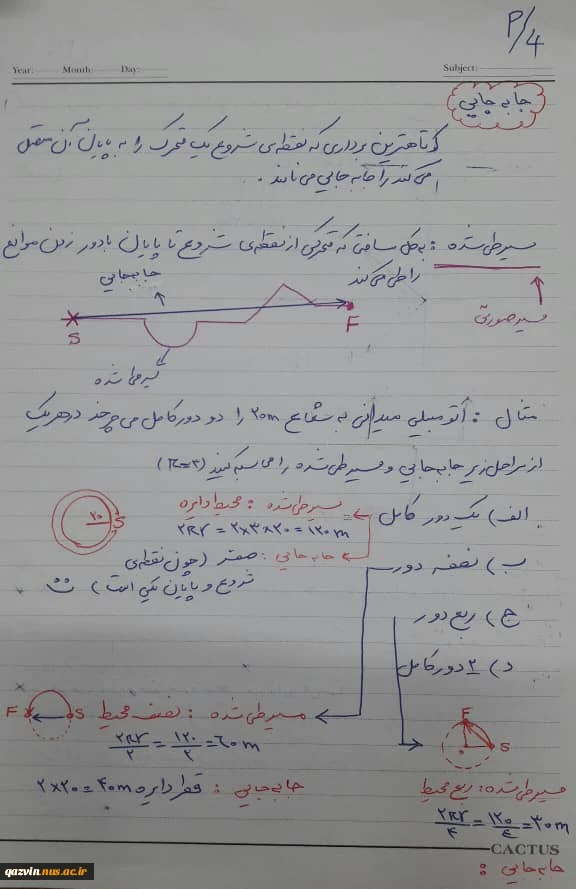 P/4
Year: Month: Day: Subject:
جابه جایی
کوتاهترین برداری که نقطه‌ی شروع یک متحرک را به پایان آن متصل
می‌کند را جابه جایی می‌نامند.
مسیر طی شده : به کل مسافتی که متحرکی از نقطه‌ی شروع تا پایان با دور زدن موانع
را طی می‌کند
جابه‌جایی
S
F
مسیر صورتی
مسیر طی شده
مثال : اتومبیلی میدانی به شعاع ۲۰m را دو دور کامل می‌چرخد در هر یک
از مراحل زیر جابه جایی و مسیر طی شده را محاسبه کنید (π=۳)
الف) یک دور کامل
مسیر طی شده : محیط دایره
۲πr = ۲×۳×۲۰ = ۱۲۰ m
جابه جایی : صفر (چون نقطه‌ی
شروع و پایان یکی است)
۲۰
S
ب) نصفه دور
ج) ربع دور
د) ۲ دور کامل
F S
مسیر طی شده : نصف محیط
۲πr/۲ = ۱۲۰/۲ = ۶۰ m
جابه جایی : قطر دایره ۲×۲۰=۴۰m
F
S
مسیر طی شده : ربع محیط
۲πr/۴ = ۱۲۰/۴ = ۳۰ m
جابه جایی :
CACTUS
qazvin.nus.ac.ir